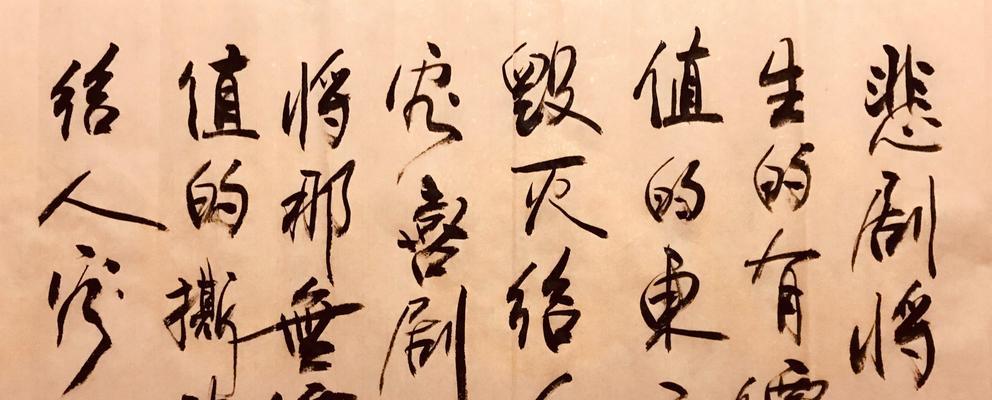 悲剧将
生的有
值的东
毁灭给
喜剧
将那無
值的撕
给人